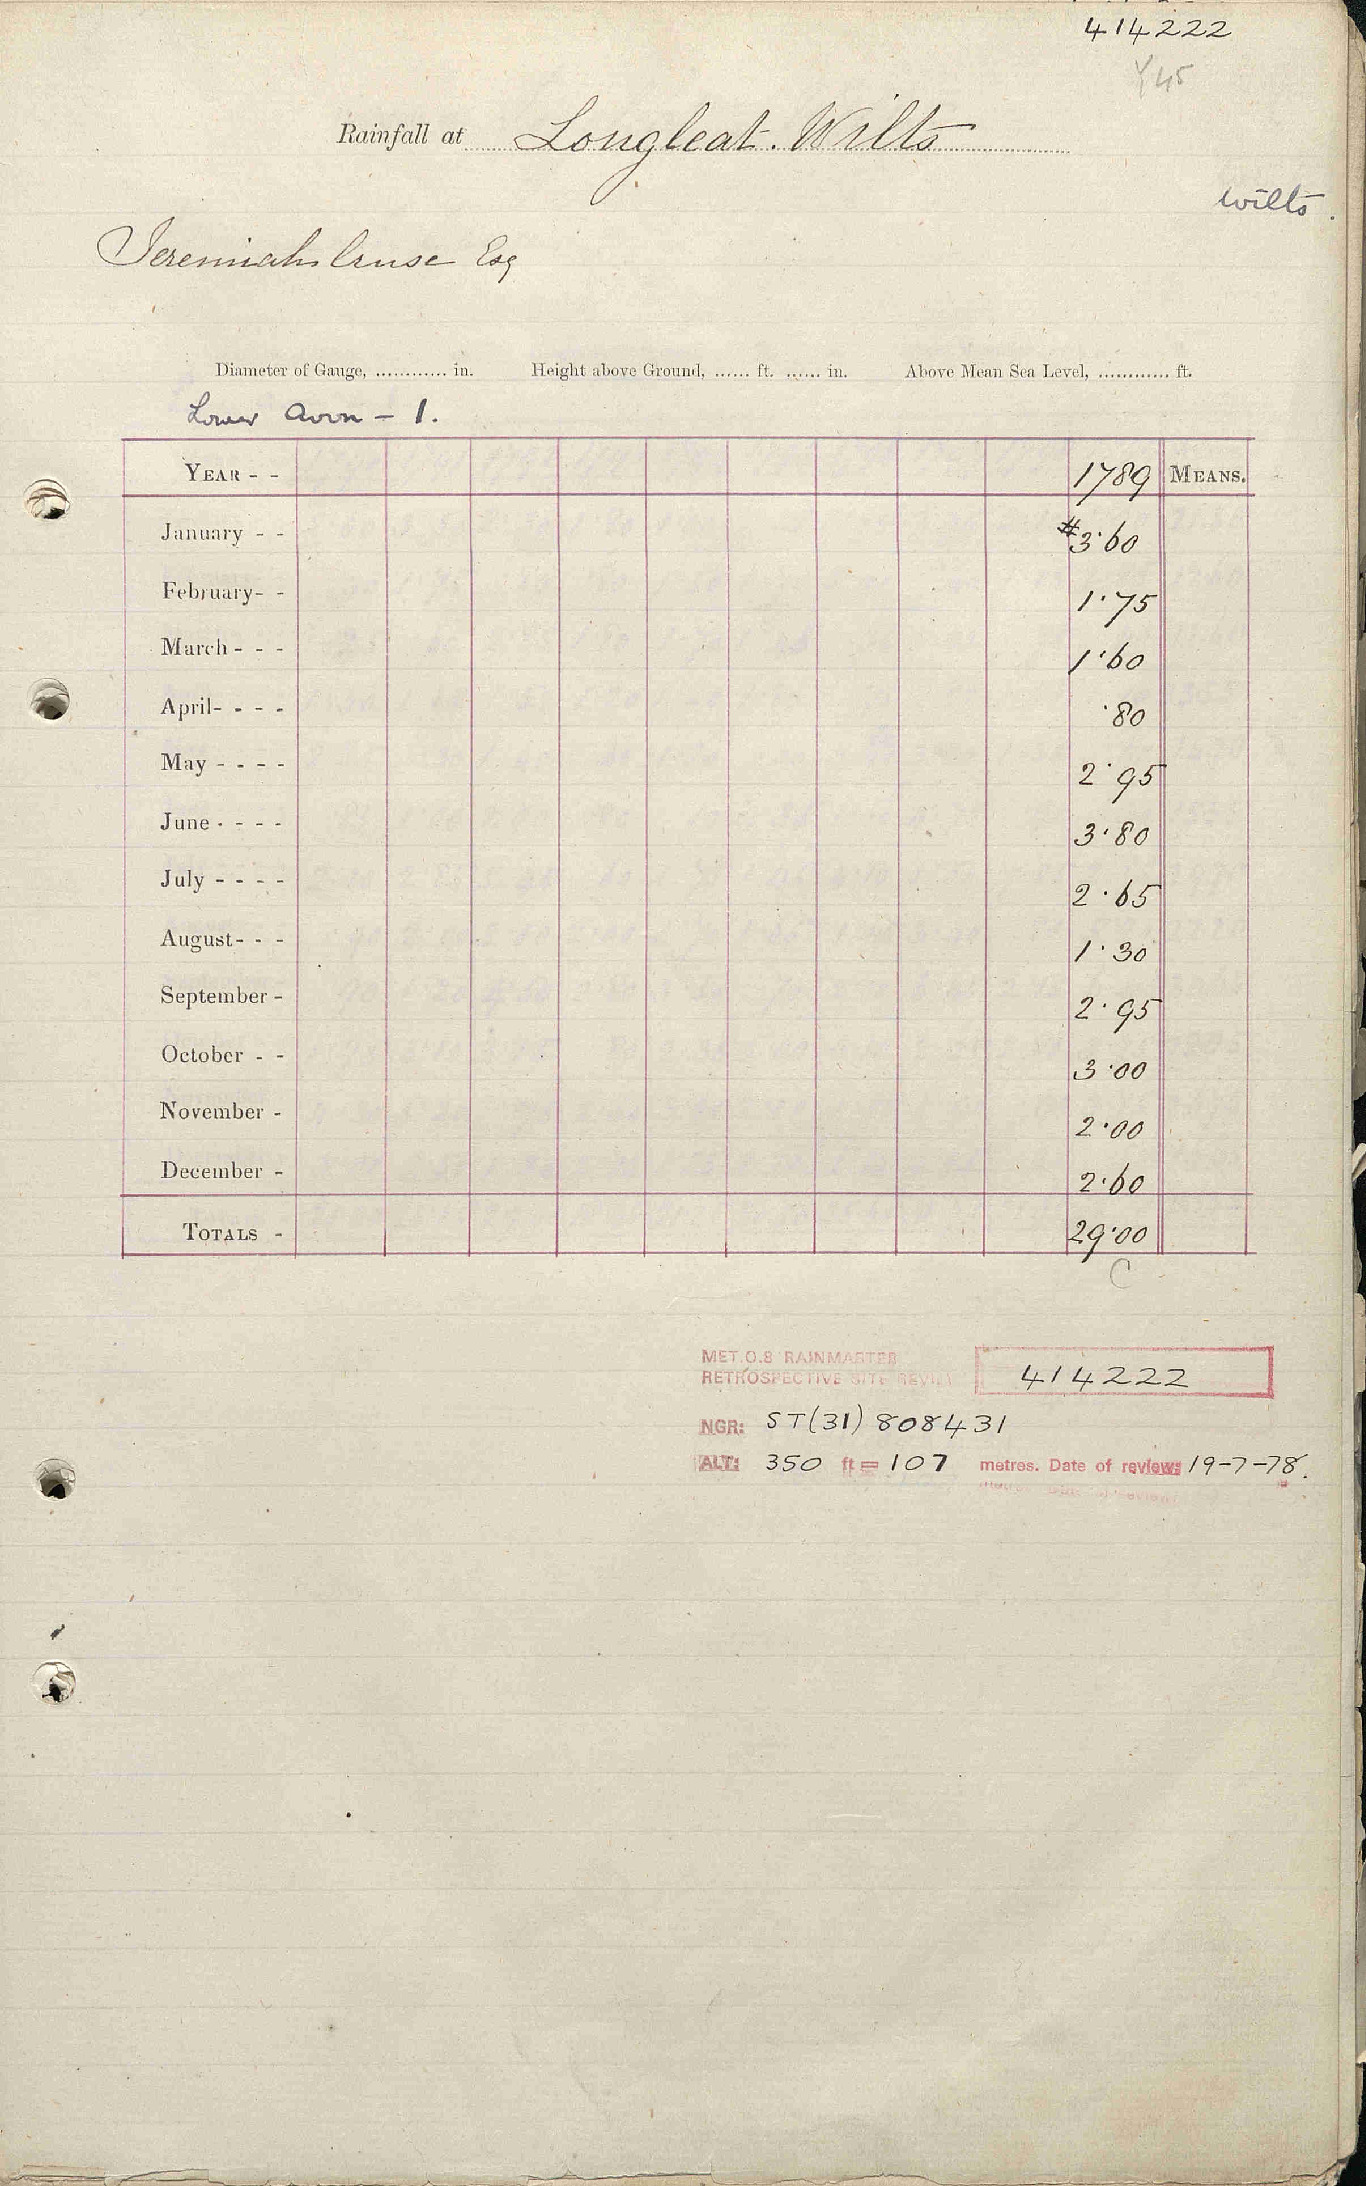 414222
Y45
Rainfall at Longleat. Wilts
Wilts.
Jeremiah Cruse Esq
Diameter of Gauge, ............ in. Height above Ground, ...... ft. ...... in. Above Mean Sea Level, ............ ft.
Lower Avon - 1.
YEAR - - 1789 MEANS.
January - - #3.60
February - - 1.75
March - - - 1.60
April - - - - .80
May - - - - 2.95
June - - - - 3.80
July - - - - 2.65
August - - - 1.30
September - 2.95
October - - 3.00
November - 2.00
December - 2.60
TOTALS - 29.00
C
MET.O.8 RAINMASTER
RETROSPECTIVE SITE REVIEW 414222
NGR: ST(31) 808431
ALT: 350 ft = 107 metres. Date of review: 19-7-78.